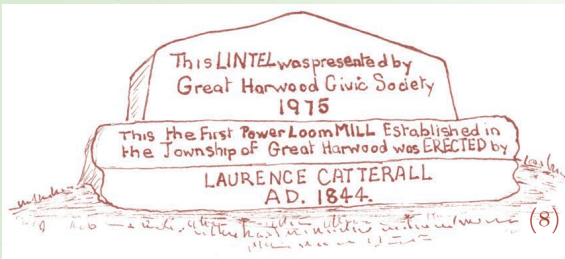 This LINTEL was presented by
Great Harwood Civic Society
1975
This the First Power Loom MILL Established in
the Township of Great Harwood was ERECTED by
LAURENCE CATTERALL
AD. 1844.
(8)